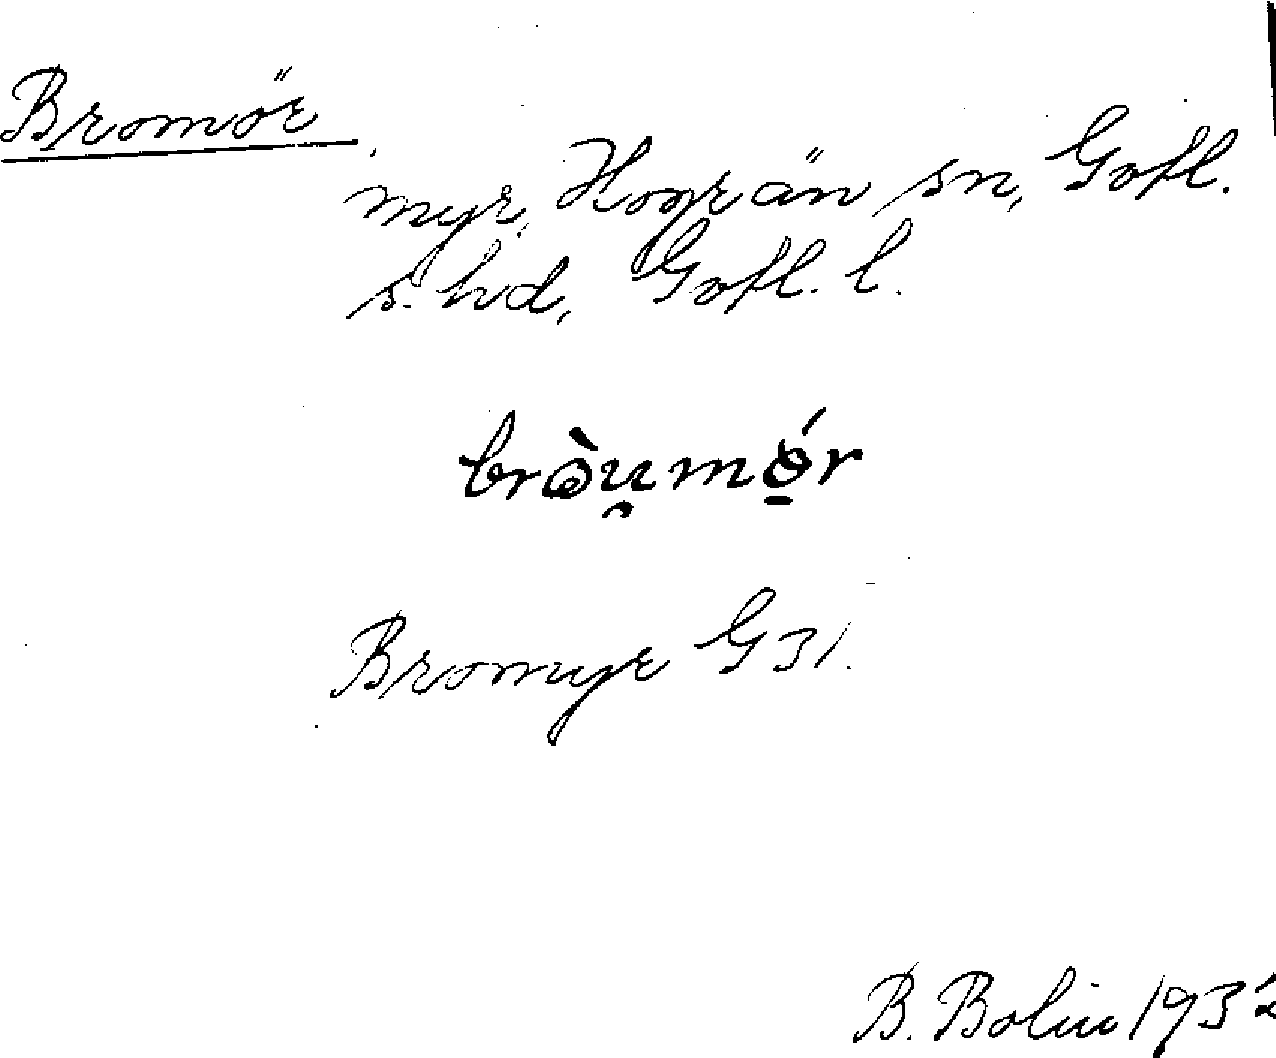 Bromör,
myr, Hogrän sn, Gotl.
s. hd, Gotl. l.
bròu̯mǿ̠r
Bromyr G 31.
B. Bolin 1932